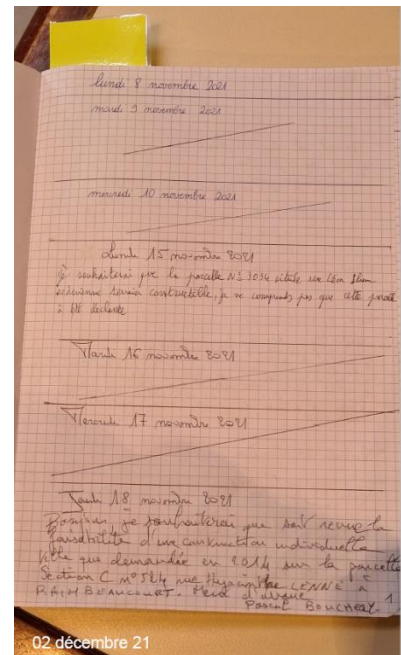 lundi 8 novembre 2021
mardi 9 novembre 2021
mercredi 10 novembre 2021
Lundi 15 novembre 2021
Je souhaiterai que la parcelle N° 3034 située sur
constructible, je ne comprends pas que cette
à été
Mardi 16 novembre 2021
Mercredi 17 novembre 2021
Jeudi 18 novembre 2021
Bonjour, je souhaiterai que soit revue la
faisabilité d'une construction individuelle
telle que demandée en 2014 sur la parcelle
Section C n° 524 rue Hyacinthe LENNE à
RAIMBEAUCOURT. Merci d'avance
Pascal BOUCHERT.
1
02 décembre 21